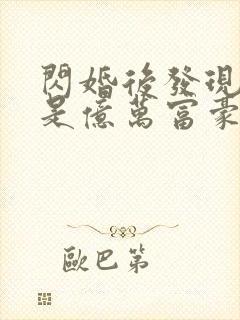 閃婚後發現
是億萬富豪
歐巴第